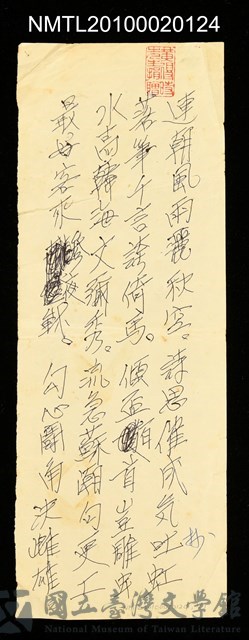 NMTL20100020124
連朝風雨麗秋空。詩思催成気吐虹
落筆千言誇倚馬。傾盃百首豈雕虫
水高韓海文彌秀。流急蘇潮句更工
最好客來夜戰。勾心鬪角決雌雄
國立臺灣文學館
National Museum of Taiwan Literature